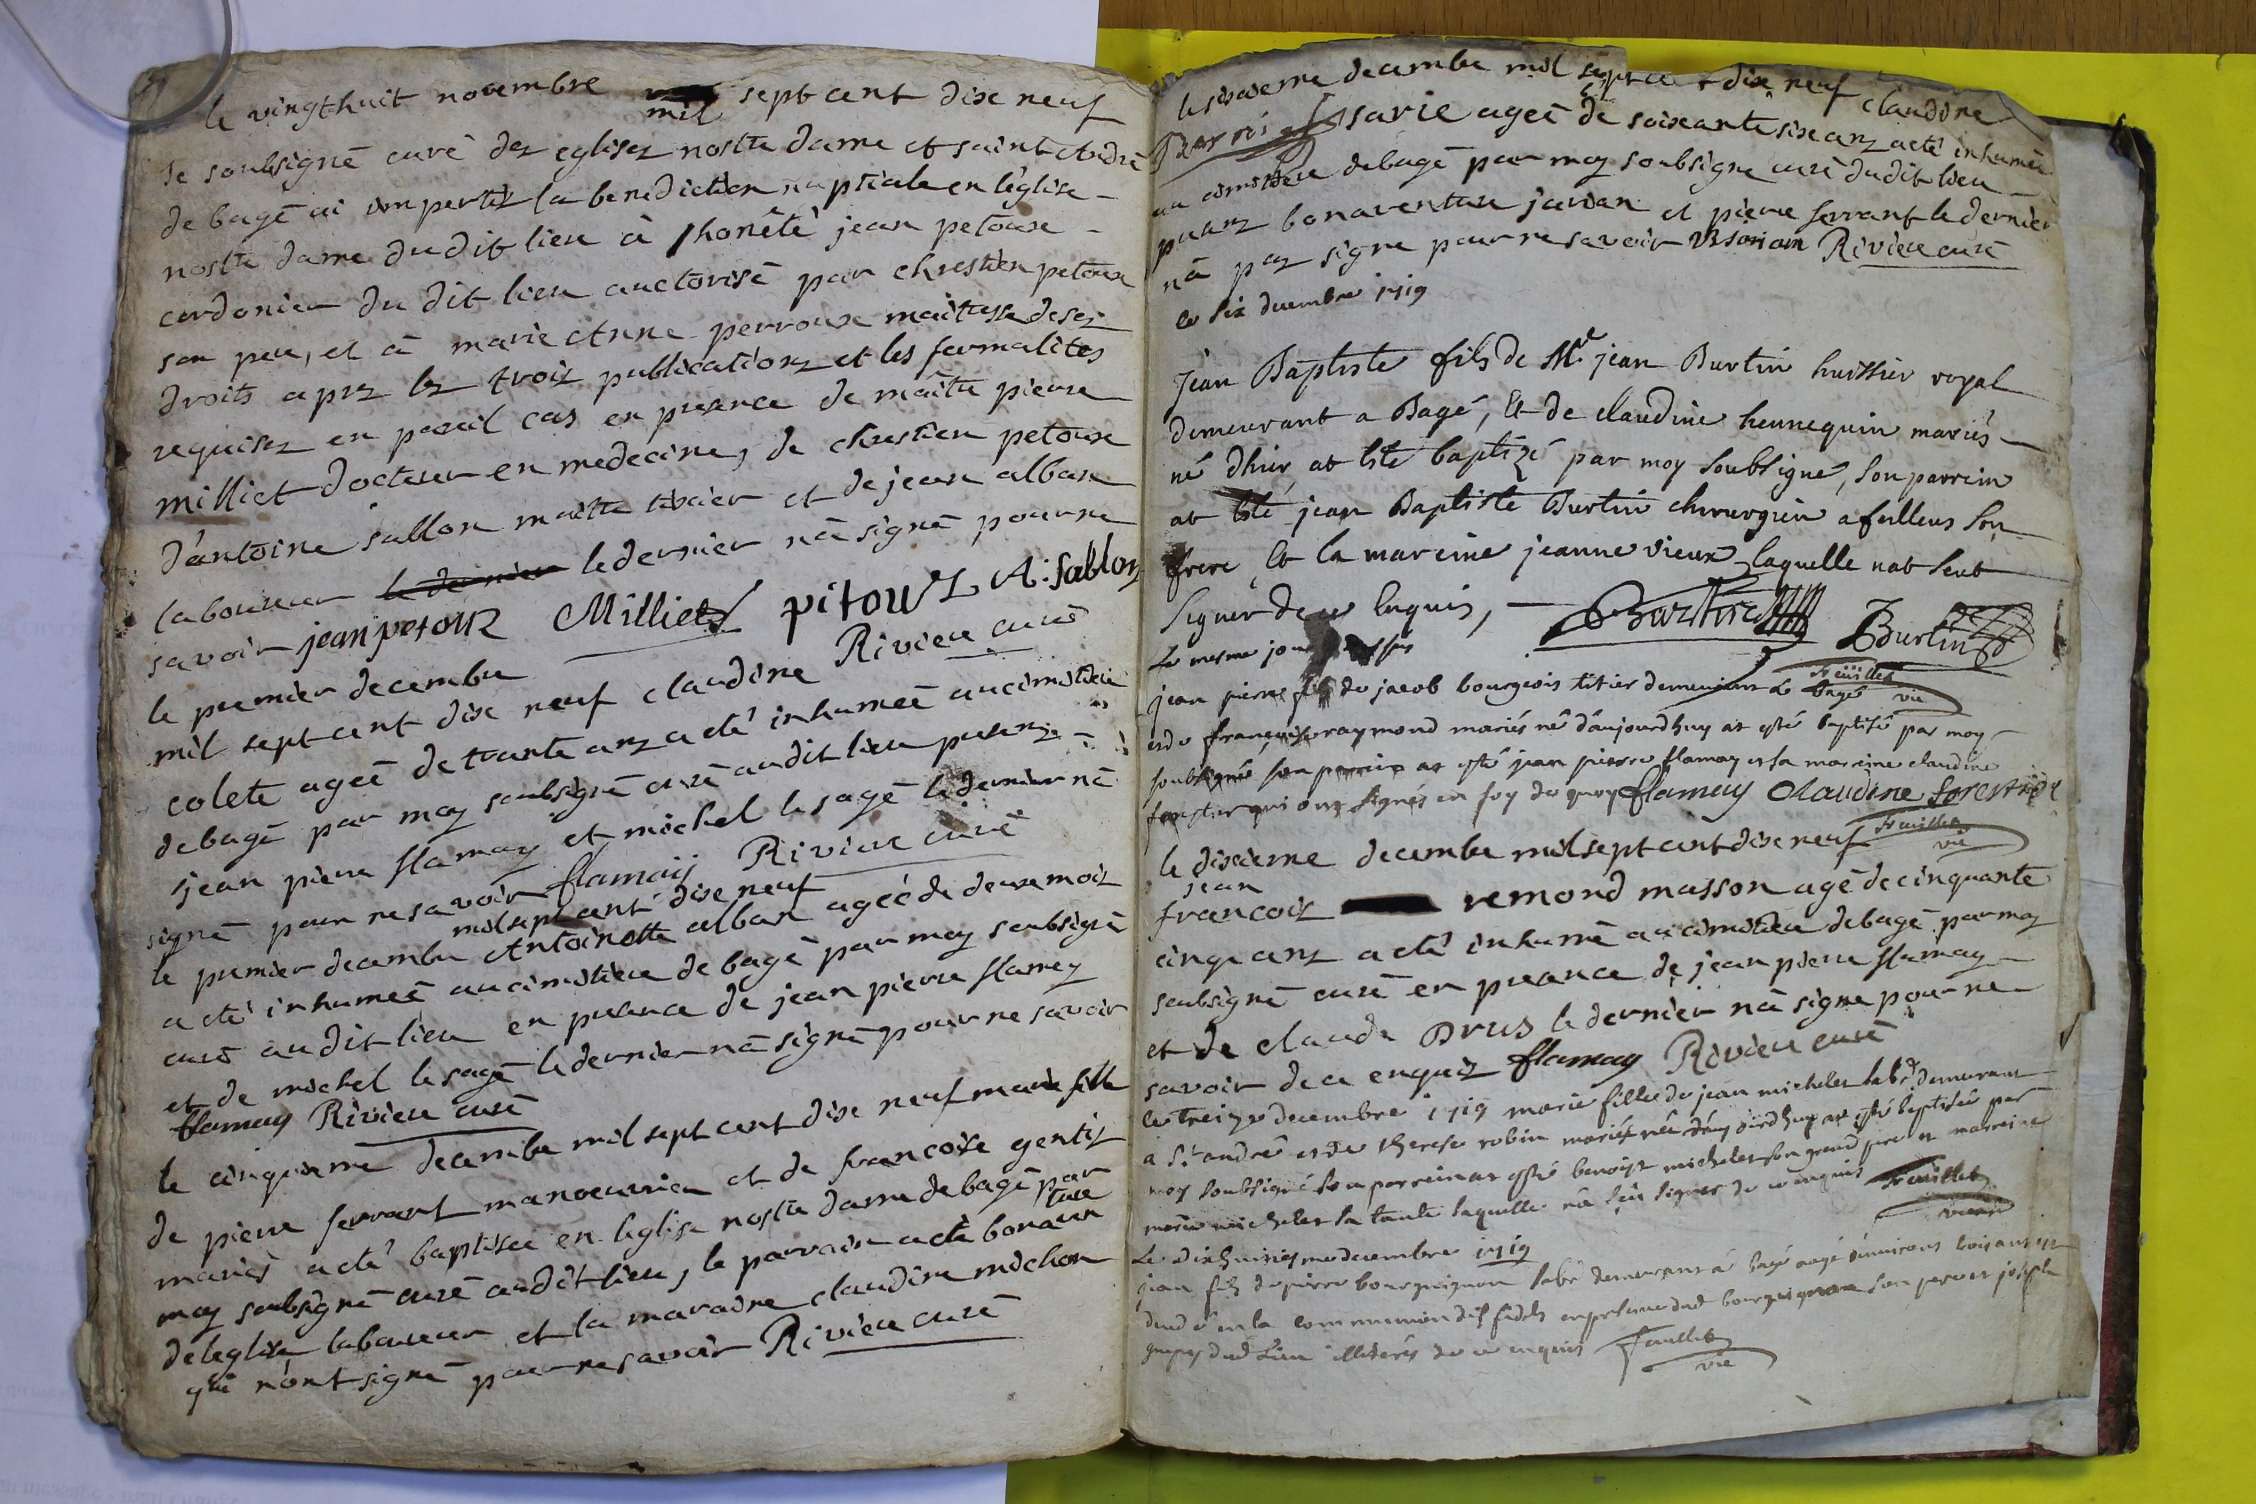 le vingthuit novembre mil sept cent dixe neuf
Je soubsigné curé dez eglisez nostre dame et saint André
de bagé ai impertiz la benediction nuptiale en léglise
nostre dame dudit lieu à honêtê jean petoux
cordonier du dit lieu auctorisé par chrestien petoux
son pere, et à marie Anne perroux maitresse desez
droits aprez lez troiz publications et les formalites
requisez en pareil cas en presence de maître pierre
milliet docteur en medecine, de chrestien petoux
d'antoine sablon maitre tixier et de jean alban
laboureur le dernier le dernier nâ signé pour ne
savoir jean petouz Milliet pitouz A: sablon
Riviere curé
le premier decembre
mil sept cent dixe neuf claudine
colete ageé de trante anz a eté inhumeé au cimetiere
de bagé par moy soubsigné curé audit lieu presenz
jean pierre flamay et michel lesage le dernier nâ
signé pour ne savoir flamay Riviere curé
mil sept cent dixe neuf
le premier decembre Antoinette alban ageé de deux moiz
a eté inhumeé au cimetiere de bagé par moy soubsigné
curé audit lieu en presence de jean pierre flamey
et de michel lesage le dernier nâ signé pour ne savoir
flamay Riviere curé
le cinquieme decembre mil sept cent dixe neuf marie fille
de pierre ferrant manoeuvrier et de francoise gentiz
mariés a eté baptiseé en leglise nostre dame de bagé par
moy soubsigné curé audit lieu, le parrain a eté bonaven
ture
deleglise laboureur et la maraine claudine michon
qui n'ont signé pour ne savoir Riviere curé
le sixieme decembre mil sept cent dixe neuf claudine
sarie ageé de soixante sixe anz a eté inhumeé
au cimetiere de bagé par moy soubsigné curé dudit lieu
presenz bonaventure jarian et pierre ferrant le dernier
nâ paz signé pour ne savoir Riviere curé
ce six decembre 1719
Jean Baptiste fils de Me jean Burtin huissier royal
demeurant a Bagé, Et de claudine hennequin mariés
né dhier at Esté baptizé par moy soubsigné, son parrein
at Esté jean Baptiste Burtin chirurgien a feillens son
frere, Et la mareine jeanne vieux, laquelle nat seut
signer de ce Enquis, Burtin Burtin
Le mesme jour dessus Feuillet
vic
jean pierre fils de jacob bourgeois titier demeurant Le bagé
et de françoise raymond mariés né daujourdhuy at esté baptisé par moy
soubsigné son parrein at esté jean pierre flamay et sa marreine claudine
forestier qui ont signés en foy de quoy flamay Claudine forestier
Feuillet
vic
le dixieme decembre mil sept cent dixe neuf
jean
francois remond masson agé de cinquante
cinq anz a eté inhumé au cimetiere de bagé par moy
soubsigné curé en presence de jean pierre flamay
et de claude Drus le dernier nâ signé pour ne
savoir de ce enquiz flamay Riviere curé
ce treize decembre 1719 marie fille de jean michelet labr demeurant
a St andré et de therese robin mariés née daujourdhuy at esté baptisée par
moy soubsigné son parrein at esté benoist michelet son grand pere et marreine
marie michelet sa tante laquelle nâ seu signer de ce enquis Feuillet
vicaire
Le dixhuitiesme decembre 1719
jean fils de pierre bourguignon labr demeurant à bagé aagé denvirons trois ans est
decedé en la communion des fidels en presence dud bourguignon son pere et joseph
dud Lieu illiterés de ce enquis feuillet
vic